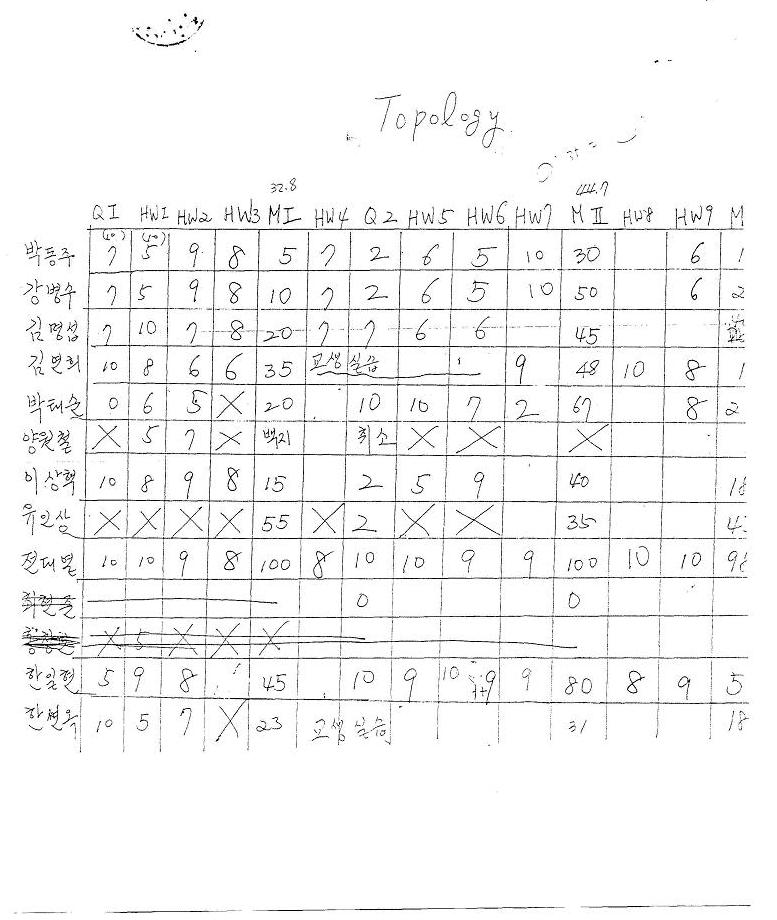 Topology
32.8 44.7
Q I HW1 HW2 HW3 M I HW4 Q 2 HW5 HW6 HW7 M II HW8 HW9 M
(10) (10)
박동주 7 5 9 8 5 7 2 6 5 10 30 6 1
강병수 7 5 9 8 10 7 2 6 5 10 50 6 2
김명섭 7 10 7 8 20 7 7 6 6 45
김연희 10 8 6 6 35 교생실습 9 48 10 8 1
박태순 0 6 5 X 20 10 10 7 2 67 8 2
양원철 X 5 7 X 백지 취소 X X X
이상혁 10 8 9 8 15 2 5 9 40 18
유오상 X X X X 55 X 2 X X 35
전대열 10 10 9 8 100 8 10 10 9 9 100 10 10 98
0 0
X 5 X X X
한일현 5 9 8 45 10 9 10 9 9 80 8 9 5
10 5 7 X 23 교생실습 31 18